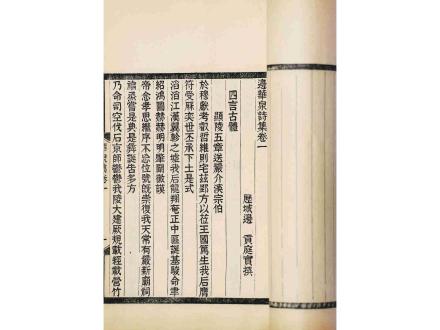 邊華泉詩集卷一
歷城邊 貢庭實撰
四言古體
顯陵五章送嚴介溪宗伯
於穆獻考哲維則宅茲郢方以莅王國篤生我后膺
符受厤奕世丕承下土是式
滔滔江漢翼軫之墟我后龍翔奄正中區誕基駿命聿
紹鴻圖赫赫明明肇闡徽謨
帝念孝思繼序不忘位號旣崇復我天常有嚴新廟祠
禴蒸嘗是典是彝誕告多方
乃命司空伐石京師鬱鬱我陵大建厥規載經載營竹